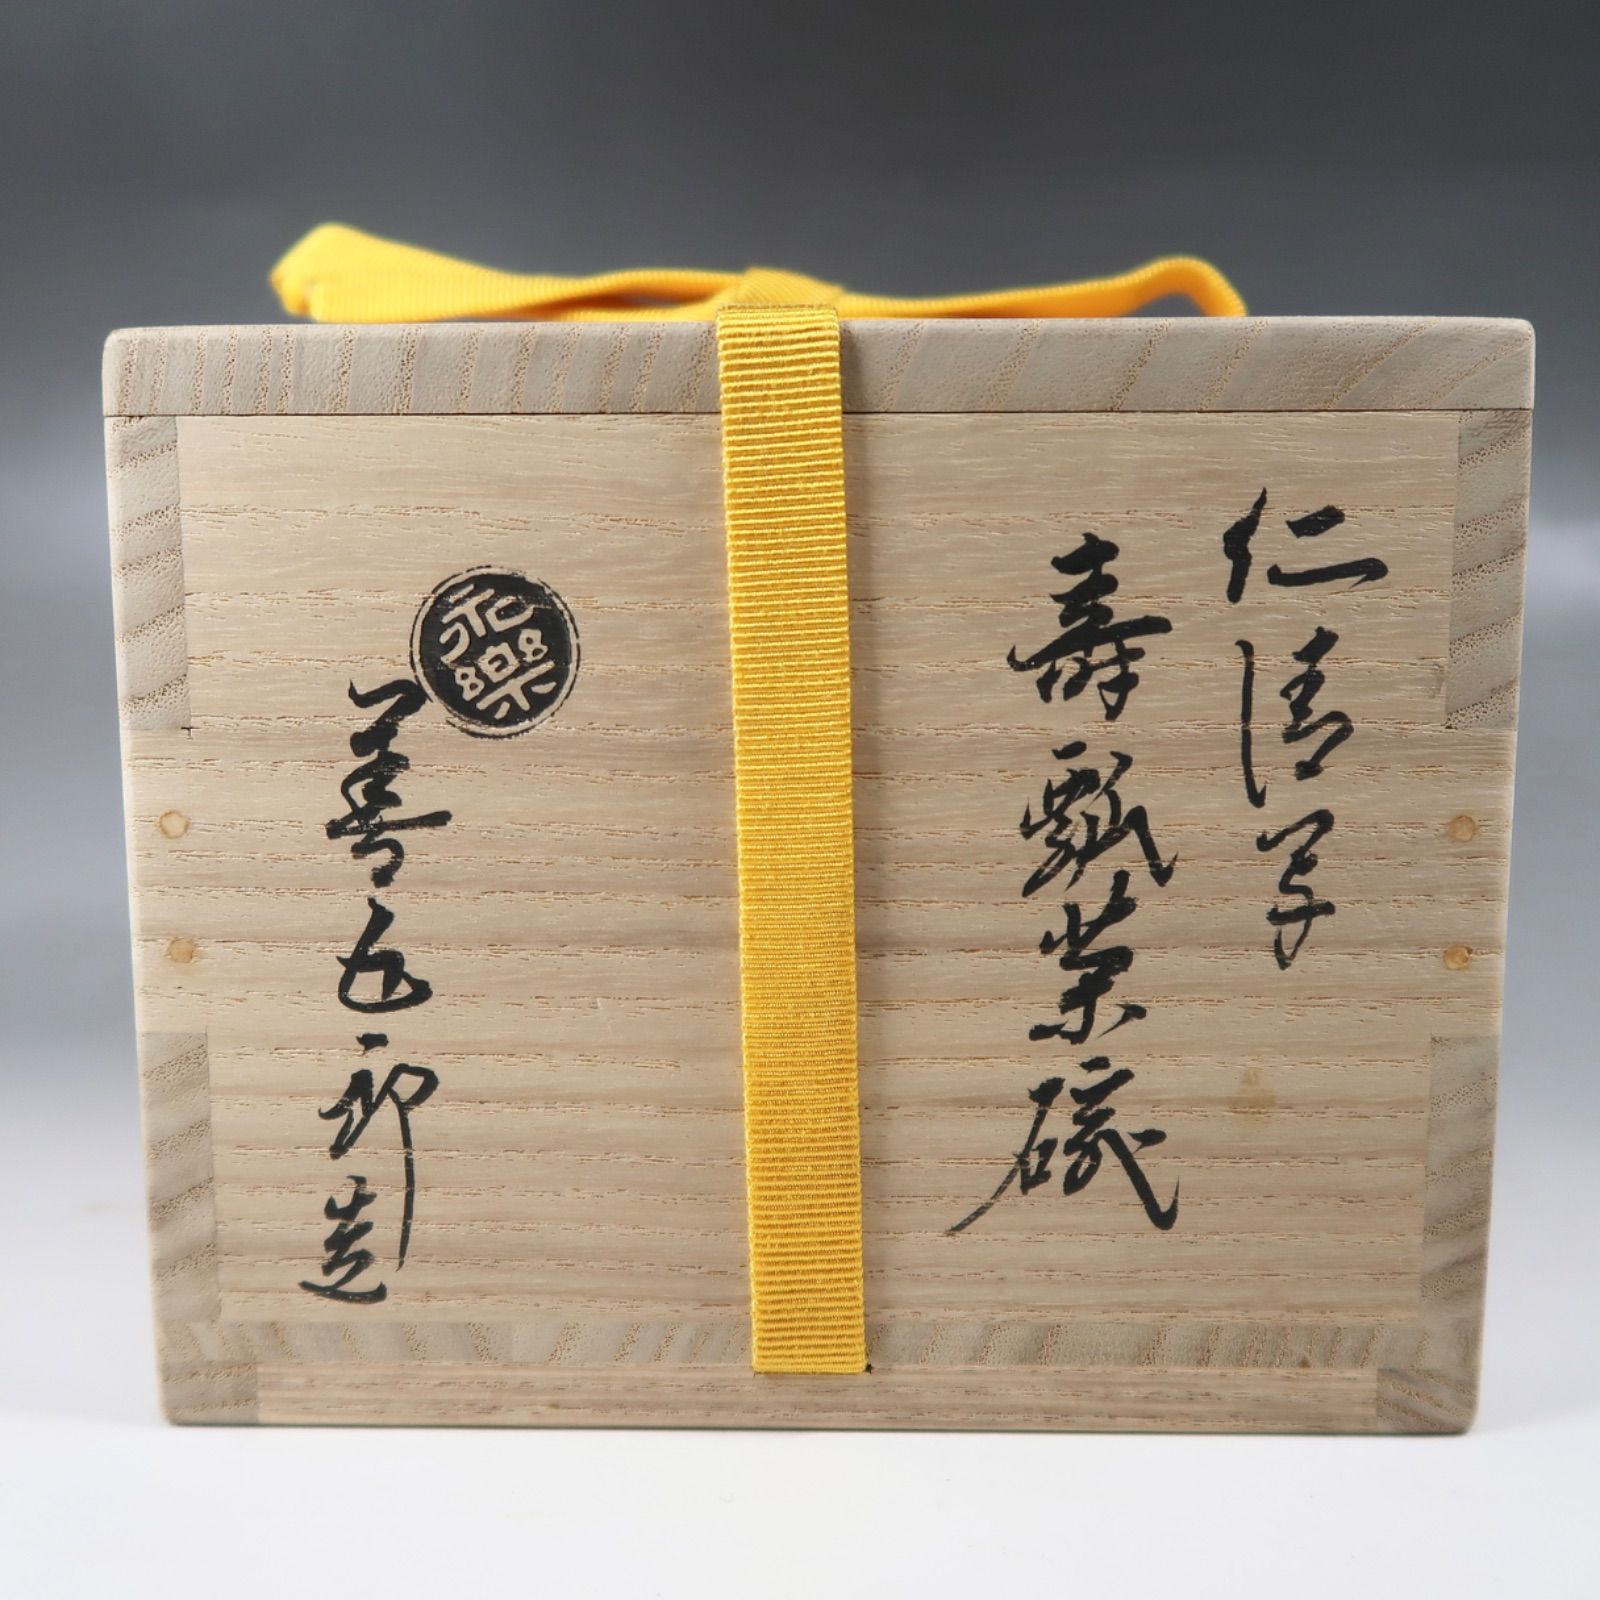 仁清写
壽瓢茶碗
永樂
善五郎造